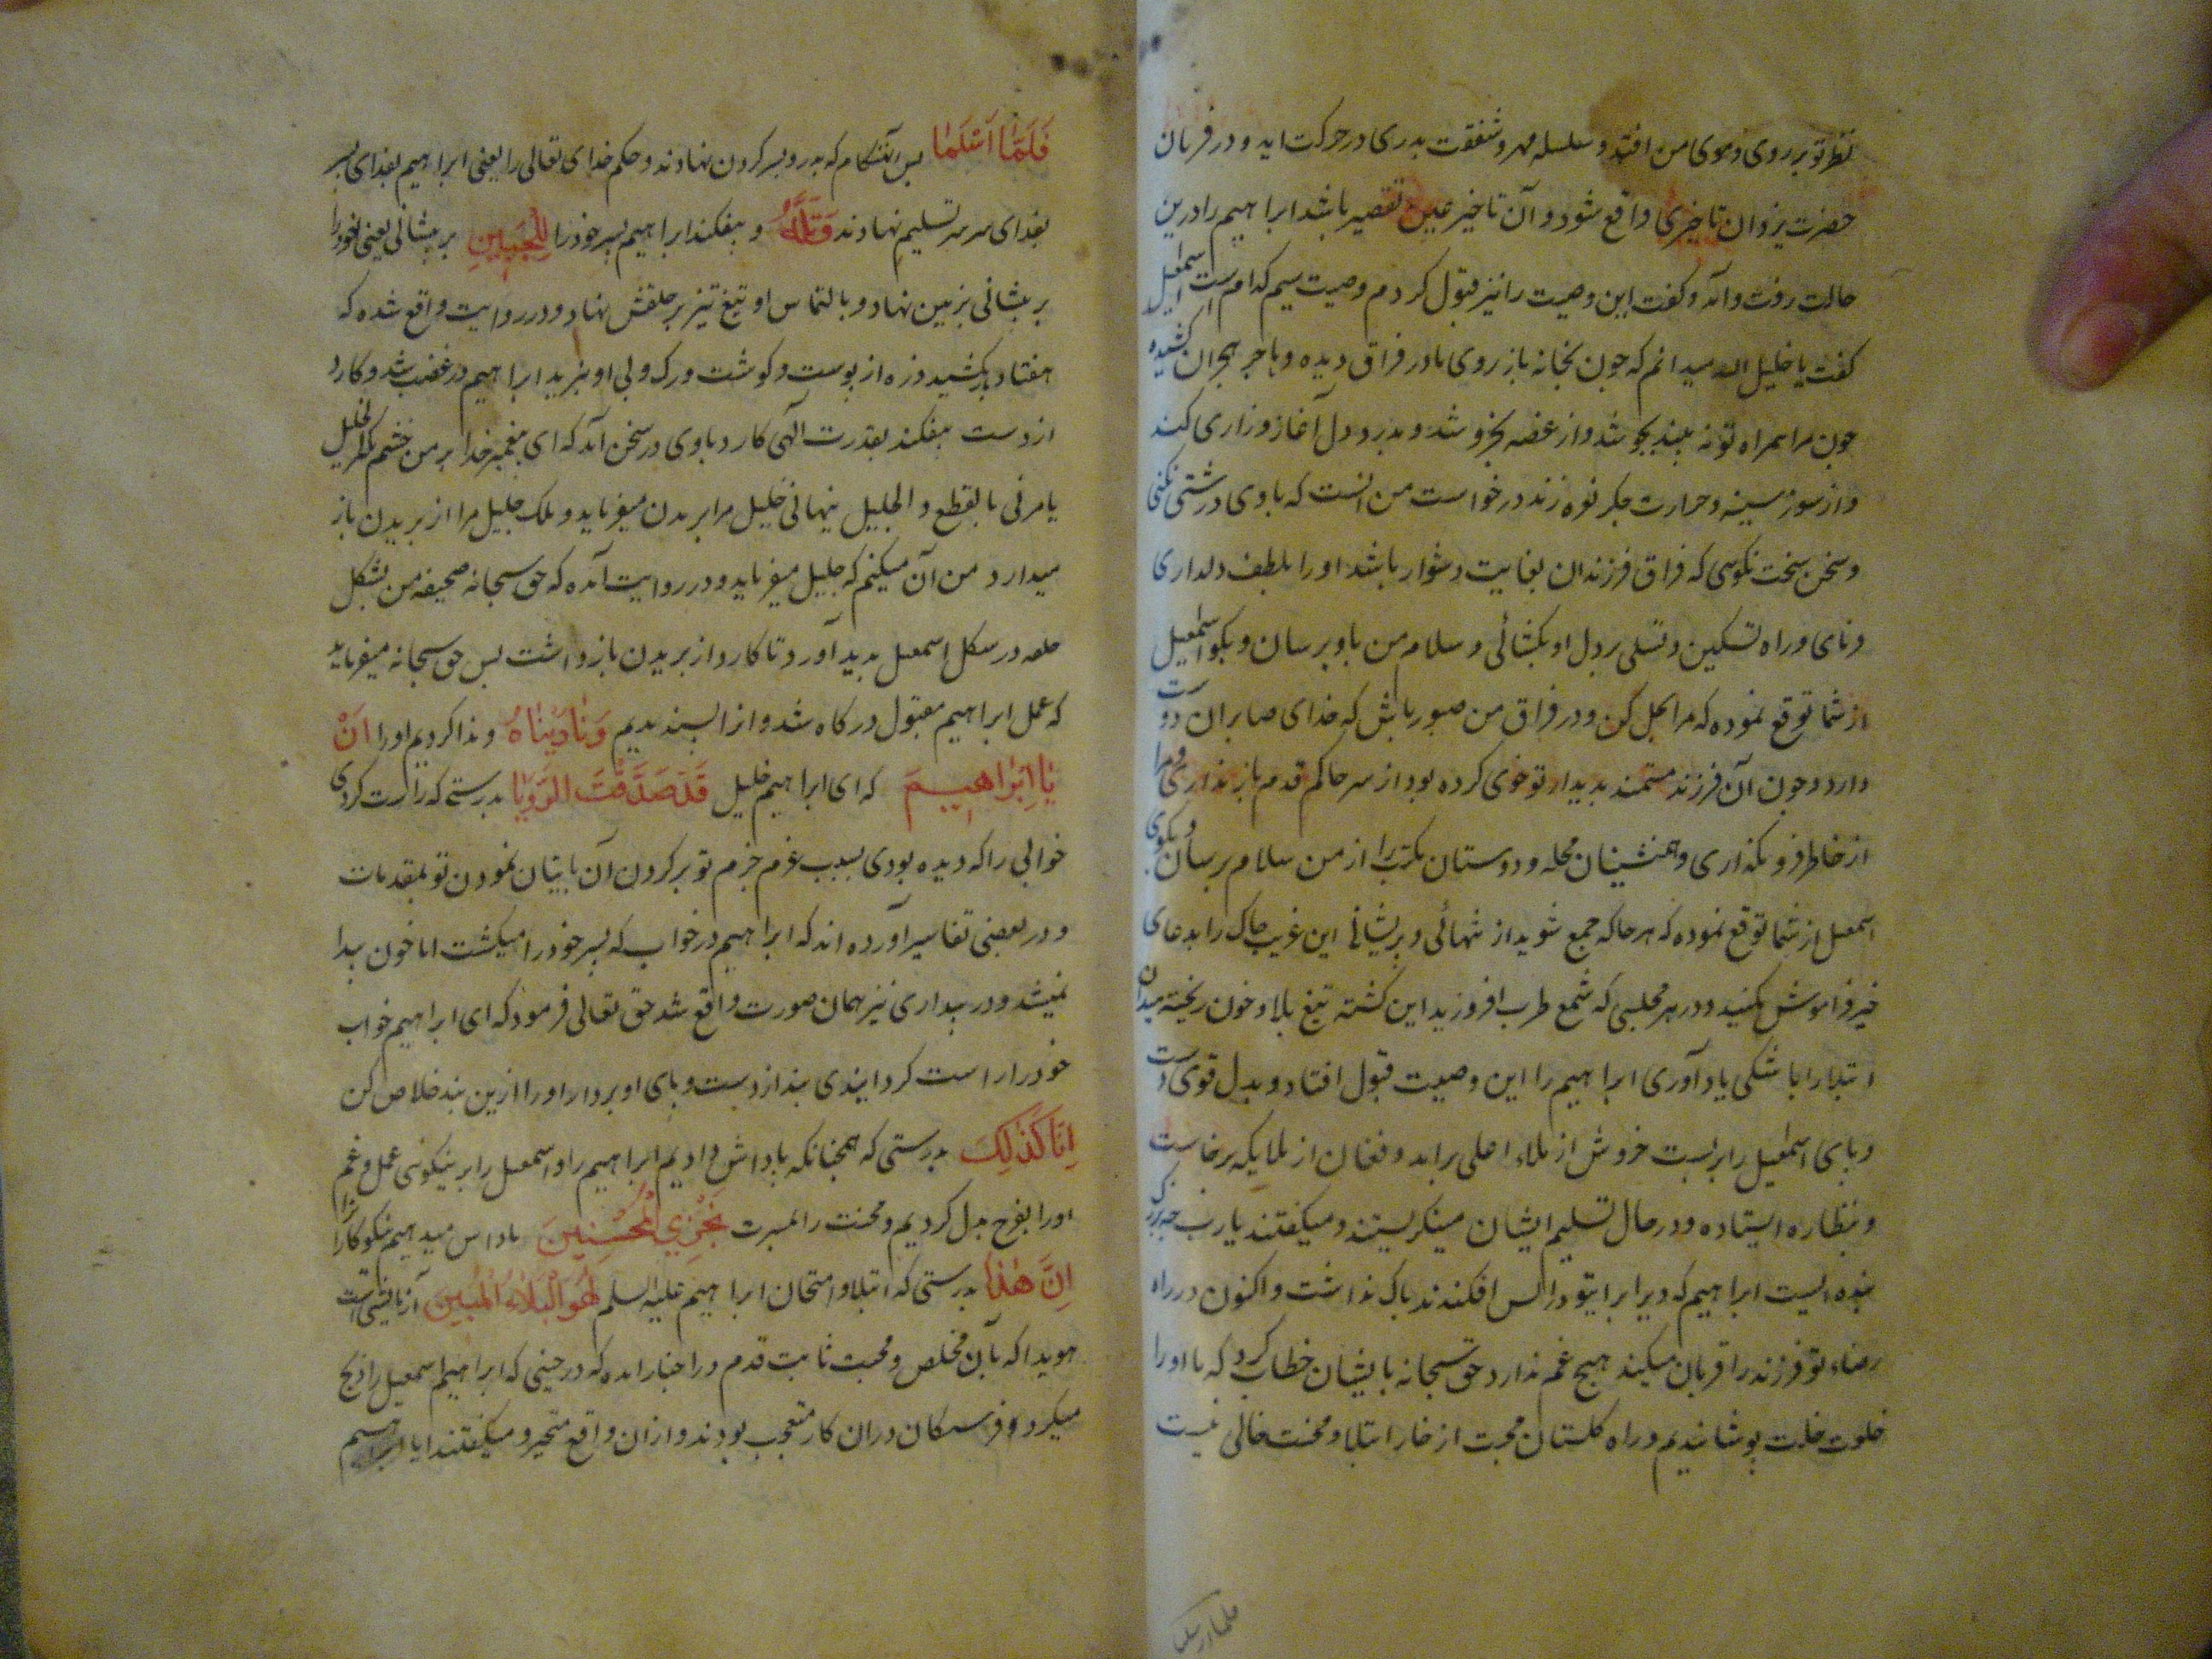 نظر تو بر روی و موی من افتد و سلسله مهر و شفقت بدری در حرکت اید و در فرمان
حضرت یزدان تاخیری واقع شود و آن تاخیر عین تقصیر باشد ابراهیم را درین
حالت رقت آمد و کفت این وصیت را نیز قبول کردم وصیت سیم کدام است اسمعیل
کفت یا خلیل الله میدانم که جون بخانه باز روی مادر فراق دیده و باجر هجران کشیده
جون مرا همراه تو نه بیند بجوشد و از غصه بخروشد و بدرد دل آغاز و زاری کند
و از سوز سینه و حرارت جکر نوه زند درخواست من انست که با وی درشتی نکنی
و سخن سخت نکویی که فراق فرزندان بغایت دشوار باشد اورا بلطف دلداری
و راه تسکین و تسلی بر دل او بکشائی و سلام من باو برسان و بکو اسمعیل
از شما توقع نموده که مرا بحل کن و در فراق من صبور باش که خدای صابران دوست
دارد و جون آن فرزند مستمند بدیدار تو خوی کرده بود از سر خاکم قدم باز نداری و مرا
از خاطر فرو نکذاری و همنشینان محله و دوستان مکتب را از من سلام برسان و بکوی
اسمعیل از شما توقع نموده که هر جا که جمع شوید از تنهائی و بریشانی این غریب خاک را بدعای
خیر فراموش نکنید و در هر مجلسی که شمع طرب افروزید این کشته تیغ بلا و خون ریخته میدان
ابتلا را با شکی یاد آوری ابراهیم را این وصیت قبول افتاد و بدل قوی دست
و بای اسمعیل را بر بست خروش از ملاء اعلی براید و فغان از ملایکه برخاست
و بنظاره ایستاده و در حال تسلیم ایشان مینکریستند و میکفتند یارب چه بزرک
بنده ایست ابراهیم که ویرا برای تو در اتش افکندند باک نداشت و اکنون در راه
رضاء تو فرزند را قربان میکند هیچ غم ندارد حق سبحانه بایشان خطاب کرد که ما اورا
خلعت خلت پوشاندیم و راه کلستان محبت از خار ابتلا و محنت خالی نیست
فَلَمَّا اَسْلَمَا بس آنهنکام که بدر و بسر کردن نهادند و حکم خدای تعالی را یعنی ابراهیم بفدای بسر
بفدای سر سر تسلیم نهادند وَتَلَّهُ و بیفکند ابراهیم بسر خود را لِلْجَبِینِ بر بیشانی یعنی خود را
بر بیشانی بزمین نهاد و بالتماس او تیغ تیز بر حلقش نهاد و در روایت واقع شده که
هفتاد بار بکشید ذره از پوست و کوشت و رک و پی او نبرید ابراهیم در غضب شد و کارد
از دست بیفکند بقدرت آلهی کارد با وی در سخن آمد که ای بیغمبر خدا بر من خشم مکیر الخلیل
یامرنی بالقطع و الجلیل ینهانی خلیل مرا بریدن میفرماید و ملک جلیل مرا از بریدن باز
میدارد من آن میکنم که جلیل میفرماید و در روایت آمده که حق سبحانه صحیفه مس بشکل
حلقه در شکل اسمعیل بدید آورد تا کارد از بریدن باز داشت بس حق سبحانه میفرماید
که عمل ابراهیم مقبول درکاه شد و انرا بسندیدیم وَنَادَیْنَاهُ و ندا کردیم اورا اَنْ
یَا اِبْرَاهِیمَ که ای ابراهیم خلیل قَدْ صَدَّقْتَ الرُّوْیَا بدرستی که راست کردی
خوابی را که دیده بودی بسبب عزم جزم تو بر کردن آن با بنیان نمودن تو بمقدمات
و در بعضی تفاسیر آورده اند که ابراهیم در خواب که بسر خود را میکشت اما خون بیدا
نمیشد و در بیداری نیز همان صورت واقع شد حق تعالی فرمود که ای ابراهیم خواب
خود را راست کردانیدی بند از دست و پای او بردار اورا ازین بند خلاص کن
اِنَّا کَذٰلِکَ بدرستی که همچنانکه باداش دادیم ابراهیم را و اسمعیل را بر نیکوئی عمل و غم
اورا بفرح بدل کردیم و محنت را بمسرت نَجْزِی الْمُحْسِنِینَ باداش میدهیم نیکوکارانرا
اِنَّ هٰذَا بدرستی که ابتلا و امتحان ابراهیم علیه السلم لَهُوَ الْبَلَاءُ الْمُبِینَ آزمایشی است
هویدا که بآن مخلص و محبت ثابت قدم و در اخبار امده که در حینی که ابراهیم اسمعیل را ذبح
میکرد و فرشتکان دران کار متعجب بودند و ازان واقع متحیر و میکفتند ایا ابراهیم